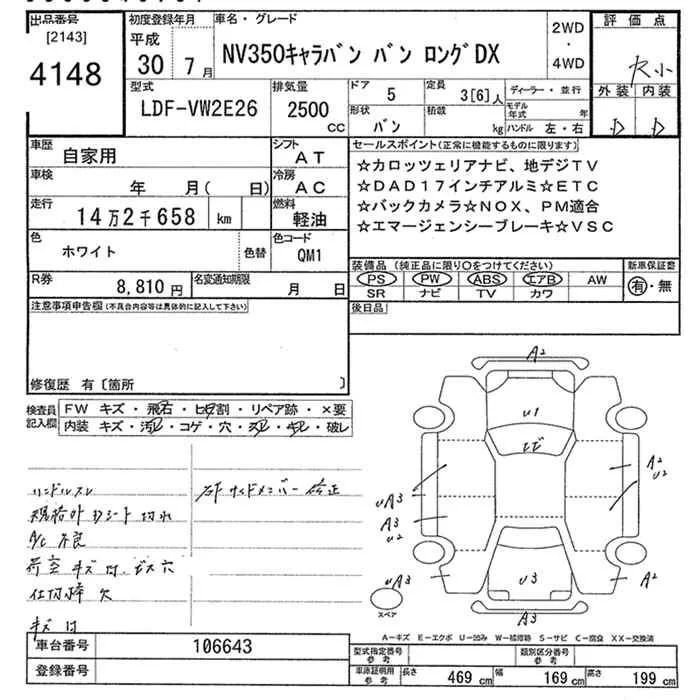 出品番号
[2143]
4148
初度登録年月
平成
30 7月
車名・グレード
NV350キャラバン バン ロングDX
2WD
・
4WD
評価点
外装 内装
D D
型式
LDF-VW2E26
排気量
2500
CC
ドア
5
定員
3[6]人
形状
バン
積載
kg
ディーラー・並行
モデル年式 年
ハンドル 左・右
車歴
自家用
シフト
AT
車検
年 月( 日)
冷房
AC
走行
14万2千658 km
燃料
軽油
色
ホワイト
色替
色コード
QM1
R券
8,810 円
名変通知期限
月 日
セールスポイント(正常に機能するものに限ります)
☆カロッツェリアナビ、地デジTV
☆DAD17インチアルミ☆ETC
☆バックカメラ☆NOX、PM適合
☆エマージェンシーブレーキ☆VSC
装備品(純正品に限り○をつけてください)
PS PW ABS エアB AW
SR ナビ TV カワ
新車保証書
有・無
後日品
注意事項申告欄(不具合内容等は具体的に記入して下さい)
修復歴 有〔箇所 〕
検査員記入欄
FW キズ・飛石・ヒビ割・リペア跡・×要
内装 キズ・汚レ・コゲ・穴・スレ・キレ・破レ
ハンドルスレ
規格外 Dシート切れ
A/C 不良
荷室 キズ 凹 ビス穴
仕切棒 欠
キズ 凹
右F サイドメンバー 修正
A2
U1
トビ
A2
U2
UA3
A3
U2
UA3
U3
A2
スペア
A－キズ E－エクボ U－凹み W－補修跡 S－サビ C－腐食 XX－交換済
車台番号
106643
登録番号
型式指定番号
参考
類別区分番号
参考
車庫証明用
参考
長さ 469 cm
巾 169 cm
高さ 199 cm